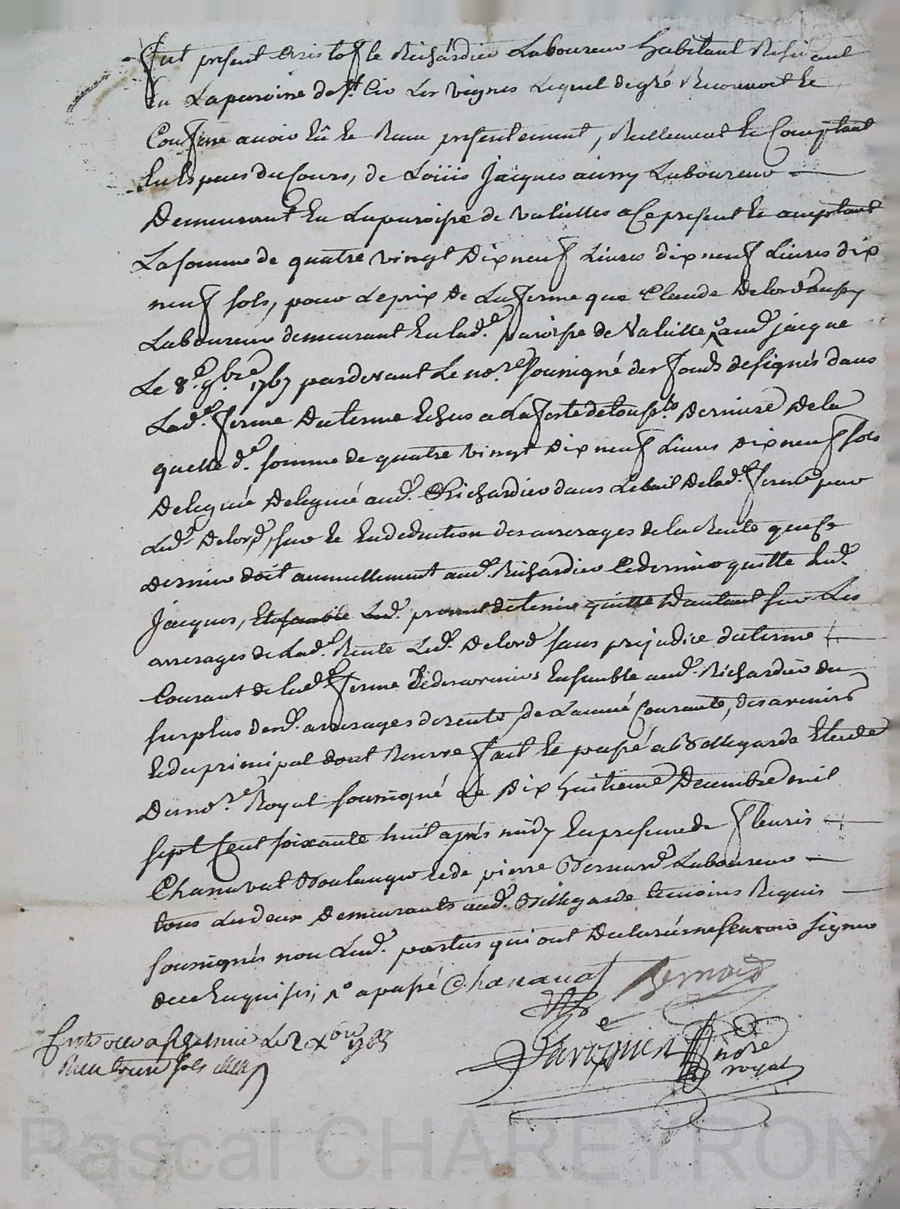 Fut présent Cristofle Richardier Laboureur habitant Résident
En La paroisse de St Cir Les vignes Lequel de gré Reconnoit Et
Confesse avoir Eu Et Receu présentement, Réellement Et Comptant
En Especes du Cours, de Loüis Jacques Laboureur
Demeurant En La paroisse de Valeilles a Ce présent Et acceptant
La somme de quatre vingt Dix neuf Livres dix neuf Livres dix
neuf sols, pour Le prix de La ferme que Claude Delorme
Laboureur demeurant En lad.e paroisse de Valeille aud. jacque
Le 8.e 9bre 1767 pardevant Le no.re soussigné des fonds designés dans
Lad.e ferme Du terme Echus a La feste de tous s.ts Derniere De la
quelle d.e somme de quatre vingt Dix neuf Livres Dix neuf sols
Délegué Délegué aud. Richardier dans Le bail De lad.e ferme par
Led. Delor, sur Et En déduction des arrerages de la Rente que Ce
Dernier doit annuellement aud. Richardier Ce dernier quitte Led.
Jacques, Led. promet de tenir quitte D'autant sur Les
arrerages de Lad.e Rente Led. Delor sans préjudice du terme
Courant de lad.e ferme Ensemble aud. Richardier du
surplus desd. arrerages de rente de L'année Courante, des avenirs
Et du principal dont Réserve fait Et passé a Bellegarde Etude
Du no.re Royal soussigné Le Dix huitieme Decembre mil
sept Cent soixante huit après midy En presence de fleuris
Chanavat Boulanger Et de pierre Bernard Laboureur
tous Les deux Demeurants aud. Bellegarde temoins Requis
soussignés non Led. parties qui ont Declaré ne sçavoir signer
de ce Enquises, a passé Chanavat Bernard
nore
royal
Le 2 xbre
sols
Pascal CHAREYRON